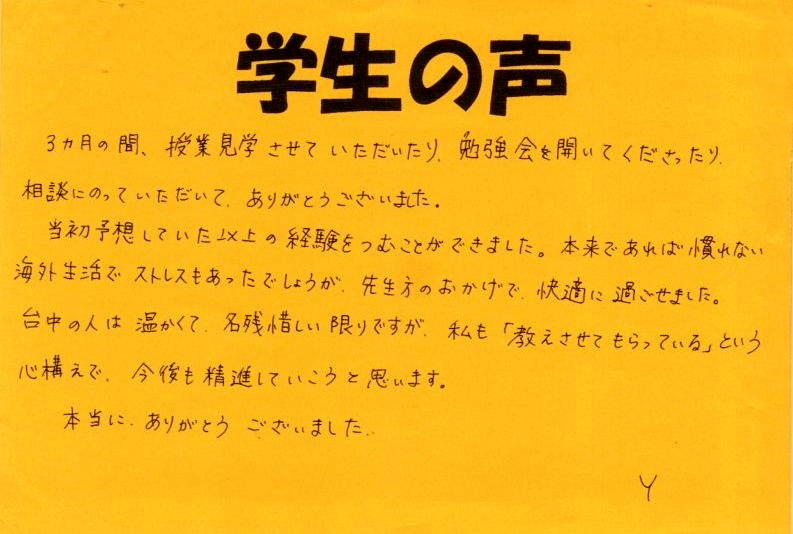 学生の声
3カ月の間、授業見学させていただいたり、勉強会を開いてくださったり、
相談にのっていただいて、ありがとうございました。
当初予想していた以上の経験をつむことができました。本来であれば慣れない
海外生活でストレスもあったでしょうが、先生方のおかげで、快適に過ごせました。
台中の人は温かくて、名残惜しい限りですが、私も「教えさせてもらっている」という
心構えで、今後も精進していこうと思います。
本当に、ありがとうございました。
Y